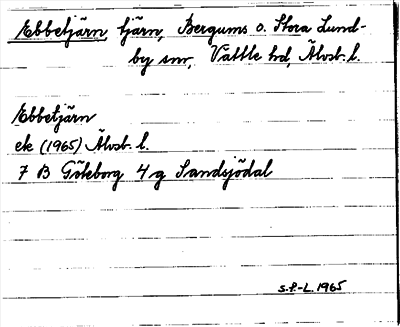 Ebbetjärn, tjärn, Bergums o. Stora Lund-
by snr, Vättle hd, Älvsb. l.
Ebbetjärn
ek (1965) Älvsb. l.
7 B Göteborg 4 g Sandsjödal
s.f.-L. 1965